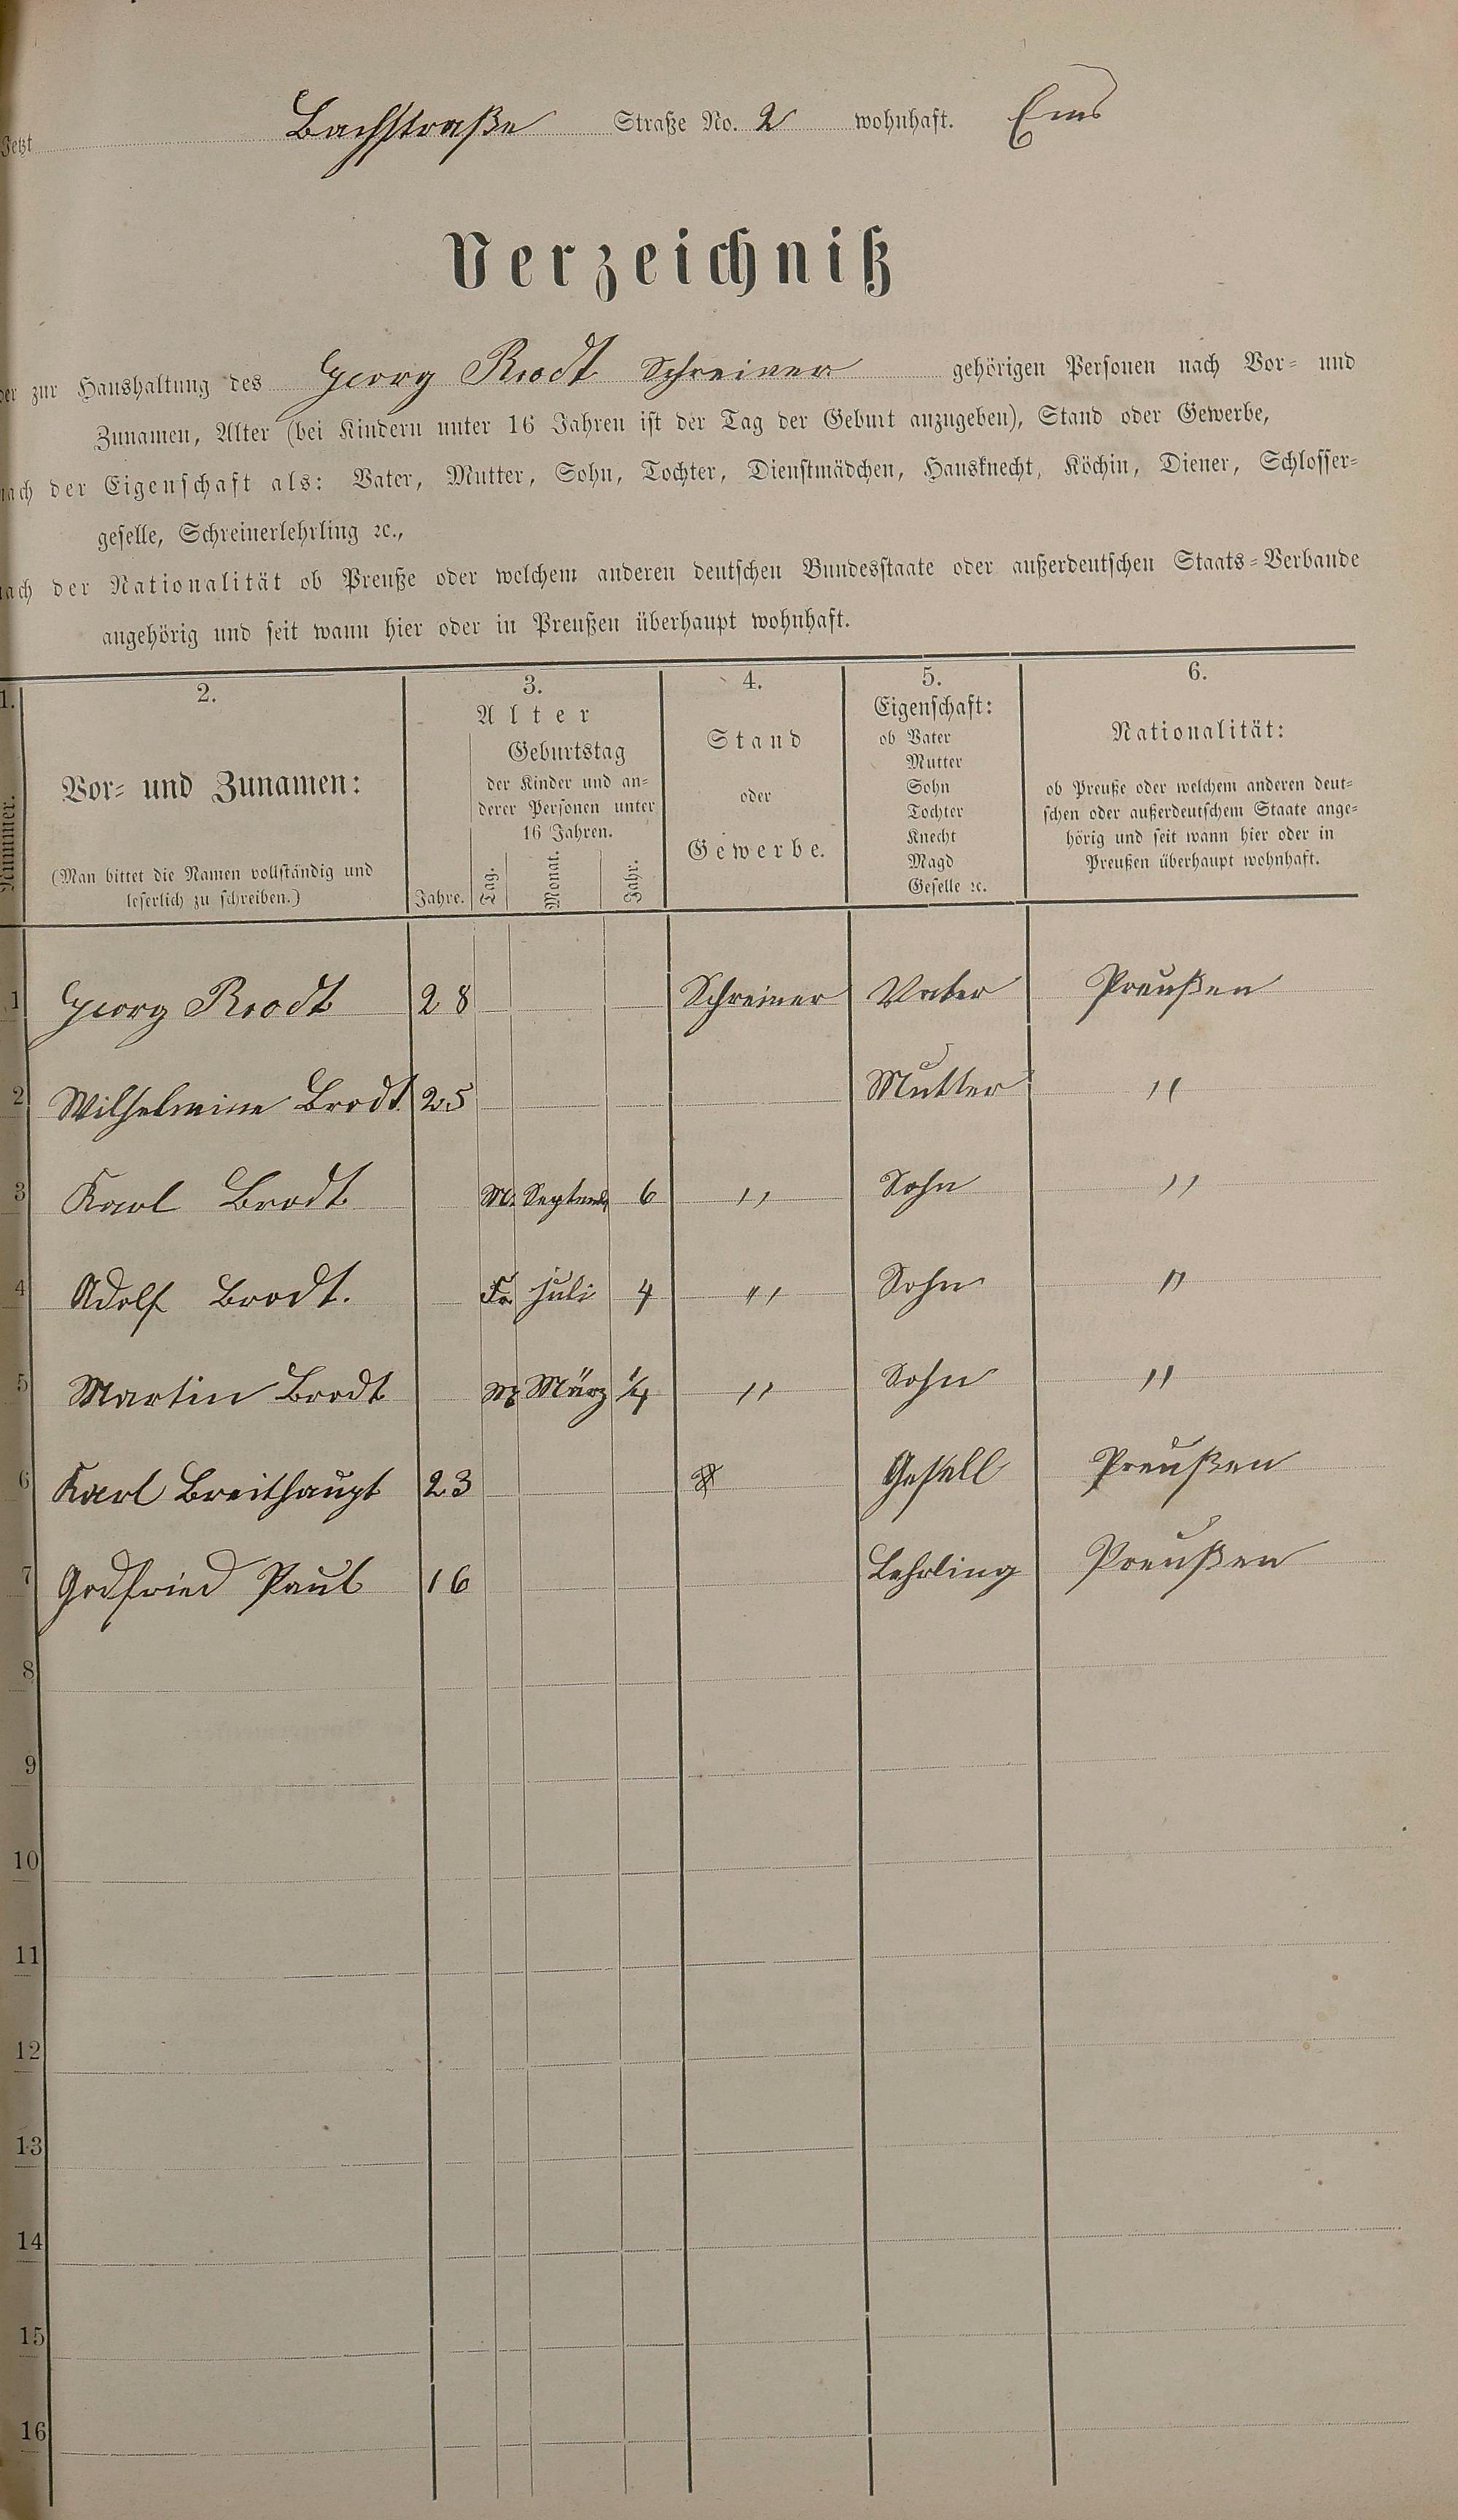 Jetzt Bachstraße Straße No. 2 wohnhaft. Ems
Verzeichniß
der zur Haushaltung des Georg Brodt Schreiner gehörigen Personen nach Vor- und
Zunamen, Alter (bei Kindern unter 16 Jahren ist der Tag der Geburt anzugeben), Stand oder Gewerbe,
nach der Eigenschaft als: Vater, Mutter, Sohn, Tochter, Dienstmädchen, Hausknecht, Köchin, Diener, Schlosser-
geselle, Schreinerlehrling ꝛc.,
nach der Nationalität ob Preuße oder welchem anderen deutschen Bundesstaate oder außerdeutschen Staats-Verbande
angehörig und seit wann hier oder in Preußen überhaupt wohnhaft.
1.
Nummer.
2.
Vor- und Zunamen:
(Man bittet die Namen vollständig und
leserlich zu schreiben.)
3.
Alter
Geburtstag
der Kinder und an-
derer Personen unter
16 Jahren.
Jahre. Tag. Monat. Jahr.
4.
Stand
oder
Gewerbe.
5.
Eigenschaft:
ob Vater
Mutter
Sohn
Tochter
Knecht
Magd
Geselle ꝛc.
6.
Nationalität:
ob Preuße oder welchem anderen deut-
schen oder außerdeutschem Staate ange-
hörig und seit wann hier oder in
Preußen überhaupt wohnhaft.
1 Georg Brodt 28 Schreiner Vater Preußen
2 Wilhelmine Brodt 25 Mutter "
3 Karl Brodt M. Septemb 6 " Sohn "
4 Adolf Brodt. Fr. Juli 4 " Sohn "
5 Martin Brodt März 1/4 " Sohn "
6 Karl Breithaupt 23 Gesell Preußen
7 Godfried Paul 16 Lehrling Preußen
8
9
10
11
12
13
14
15
16